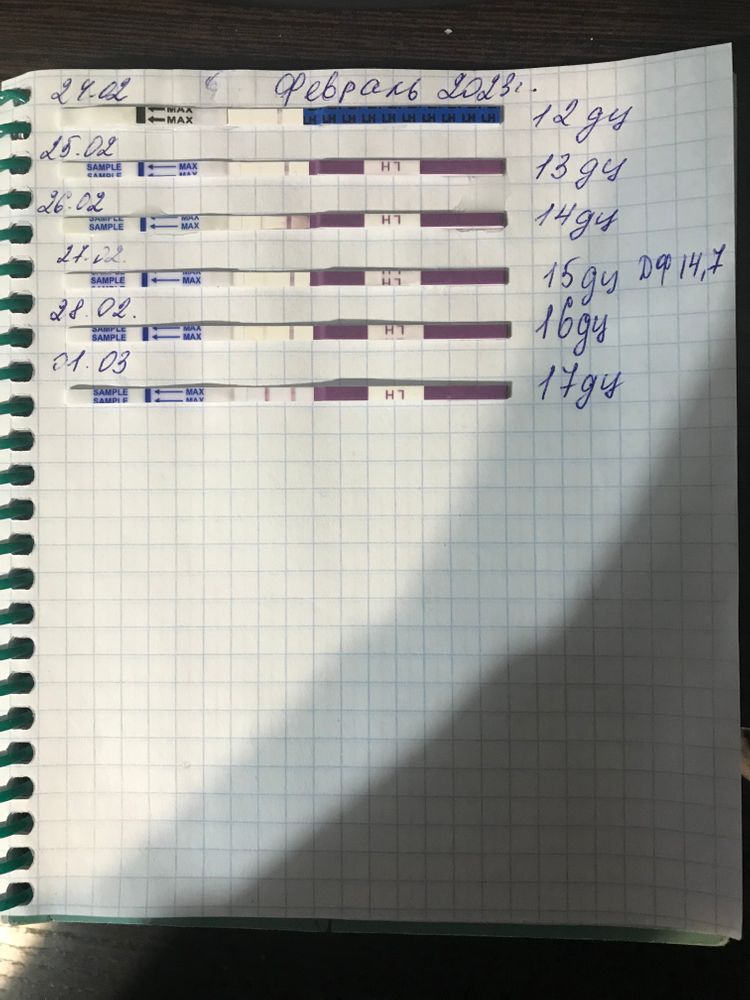 24.02 Февраль 2023г.
MAX
MAX LH LH LH LH LH LH LH LH LH 12 дц
25.02
SAMPLE MAX LH 13 дц
SAMPLE
26.02
SAMPLE MAX
SAMPLE MAX LH 14дц
27.02.
SAMPLE MAX LH 15дц ДФ 14,7
28.02.
SAMPLE MAX
SAMPLE MAX LH 16дц
01.03
SAMPLE MAX LH 17дц
SAMPLE MAX